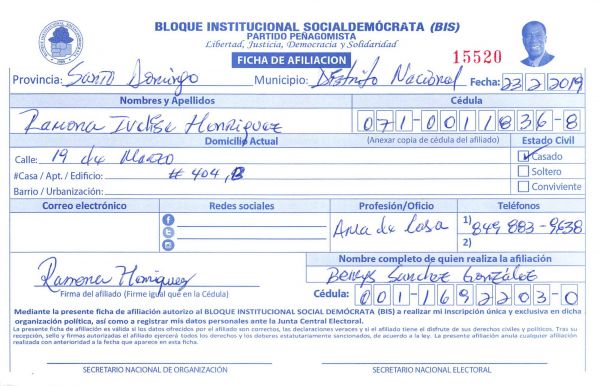 BLOQUE INSTITUCIONAL SOCIALDEMÓCRATA (BIS)
PARTIDO PEÑAGOMISTA
Libertad, Justicia, Democracia y Solidaridad
FICHA DE AFILIACION
15520
Provincia: Santo Domingo Municipio: Distrito Nacional Fecha: 23 2 2019
Nombres y Apellidos Cédula
Ramona Ivelise Henriquez 071-0011836-8
Domicilio Actual (Anexar copia de cédula del afiliado) Estado Civil
Calle: 19 de Marzo Casado
#Casa / Apt. / Edificio: # 404, B Soltero
Barrio / Urbanización: Conviviente
Correo electrónico Redes sociales Profesión/Oficio Teléfonos
Ama de Casa 1) 849 883-9638
2)
Nombre completo de quien realiza la afiliación
Ramona Henriquez Sanchez González
Firma del afiliado (Firme igual que en la Cédula) Cédula: 001-1692203-0
Mediante la presente ficha de afiliación autorizo al BLOQUE INSTITUCIONAL SOCIAL DEMÓCRATA (BIS) a realizar mi inscripción única y exclusiva en dicha
organización política, así como a registrar mis datos personales ante la Junta Central Electoral.
La presente ficha de afiliación es válida si los datos ofrecidos por el afiliado son correctos, las declaraciones veraces y si el afiliado tiene el disfrute de sus derechos civiles y políticos. Tras su
recepción, sello y firmas autorizadas el afiliado ejercerá todos los derechos y los deberes estatutariamente sancionados, de acuerdo a la ley. La presente afiliación anula cualquier afiliación
realizada con anterioridad a la fecha que aparece en esta ficha.
SECRETARIO NACIONAL DE ORGANIZACIÓN SECRETARIO NACIONAL ELECTORAL